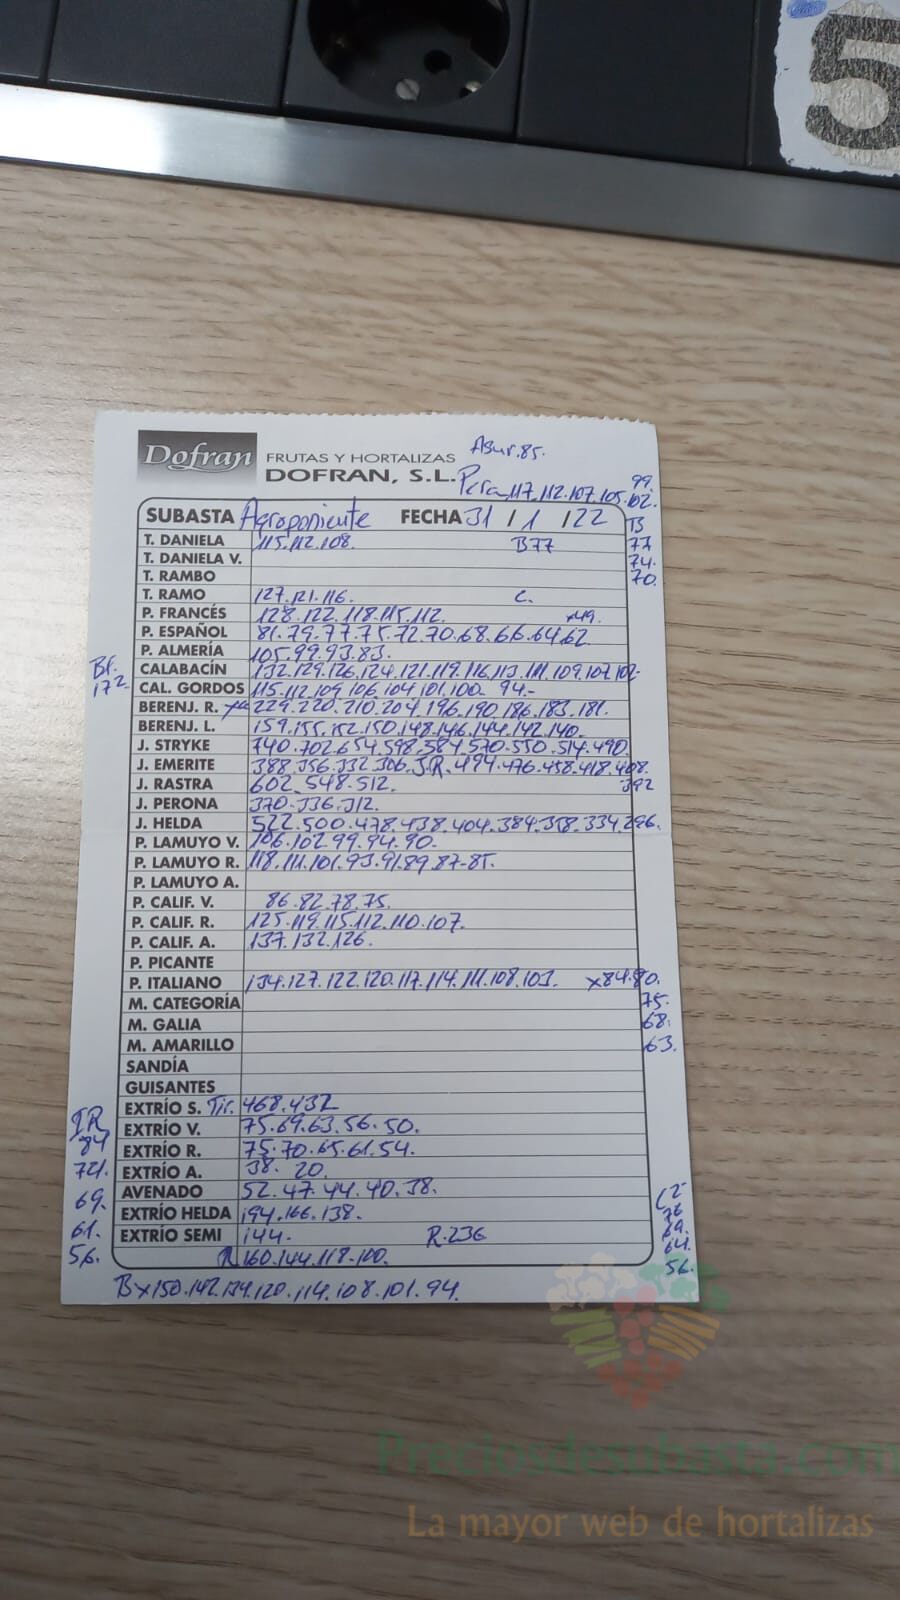 5
Dofran
FRUTAS Y HORTALIZAS
DOFRAN, S.L.
Asur.85.
Pera 117.112.107.105.102.
99.
SUBASTA Agroponiente FECHA 31 / 1 / 22
B
77
74.
70.
T. DANIELA 115.112.108. B77
T. DANIELA V.
T. RAMBO
T. RAMO 127.121.116. C.
P. FRANCÉS 128.122.118.115.112. x49.
P. ESPAÑOL 81.79.77.75.72.70.68.66.64.62
P. ALMERÍA 105.99.93.83.
Bf. 172
CALABACÍN 132.129.126.124.121.119.116.113.111.109.107.102.
CAL. GORDOS 115.112.109.106.104.101.100. 94.-
BERENJ. R. 229.220.210.204.196.190.186.183.181.
BERENJ. L. 159.155.152.150.148.146.144.142.140.
J. STRYKE 740.702.654.598.584.570.550.514.490.
J. EMERITE 388.356.332.306.J.R.494.476.458.418.408.
392
J. RASTRA 602.548.512.
J. PERONA 370.336.312.
J. HELDA 522.500.478.438.404.384.358.334.296.
P. LAMUYO V. 106.102.99.94.90.
P. LAMUYO R. 118.111.101.93.91.89.87.85.
P. LAMUYO A.
P. CALIF. V. 86.82.78.75.
P. CALIF. R. 125.119.115.112.110.107.
P. CALIF. A. 137.132.126.
P. PICANTE
P. ITALIANO 134.127.122.120.117.114.111.108.103. x84.80.
75.
68.
63.
M. CATEGORÍA
M. GALIA
M. AMARILLO
SANDÍA
GUISANTES
EXTRÍO S. Tir. 468.432
EXTRÍO V. 75.69.63.56.50.
EXTRÍO R. 75.70.65.61.54.
EXTRÍO A. 38. 20.
AVENADO 52.47.44.40.38.
EXTRÍO HELDA 194.166.138.
EXTRÍO SEMI 144. R.236
R 160.144.118.100.
Bx150.142.134.120.114.108.101.94.
IR
84
69.
61.
56.
C2
76
69.
64.
56.
Preciosdesubasta.com
La mayor web de hortalizas